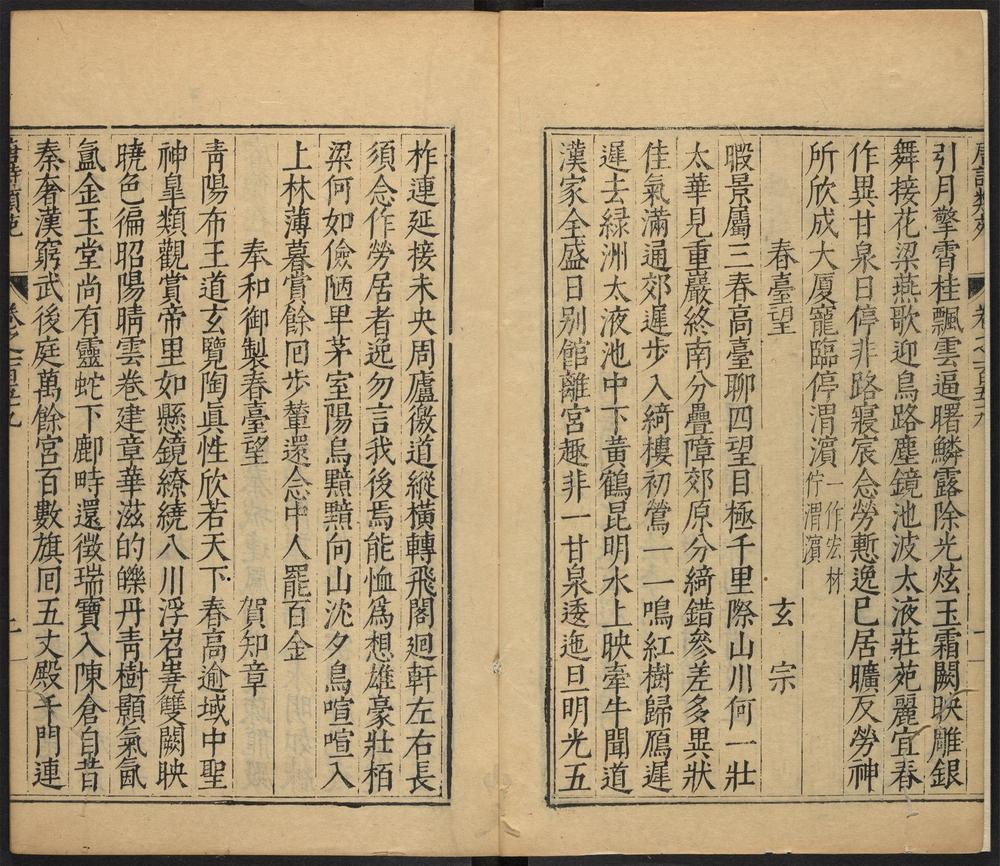 引月擎霄桂飄雲逼曙鱗露除光炫玉霜闕映雕銀
舞接花梁燕歌迎鳥路塵鏡池波太液莊苑麗宜春
作異甘泉日停非路寢宸念勞慙逸已居曠反勞神
所欣成大厦寵臨停渭濵一作宏材佇渭濵
春臺望 玄宗
暇景屬三春高臺聊四望目極千里際山川何一壯
太華見重巖終南分疊障郊原分綺錯參差多異狀
佳氣滿通郊遲步入綺樓初鶯一一鳴紅樹歸鴈遲
遲去緑洲太液池中下黃鶴昆明水上映牽牛聞道
漢家全盛日别館離宮趣非一甘泉逶迤亘明光五
柞連延接未央周廬徼道縱橫轉飛閣廻軒左右長
須念作勞居者逸勿言我後焉能恤爲想雄豪壯栢
梁何如儉陋卑茅室陽烏黯黯向山沈夕鳥喧喧入
上林薄暮賞餘回步輦還念中人罷百金
奉和御製春臺望 賀知章
青陽布王道玄覽陶真性欣若天下春高逾域中聖
神皐類觀賞帝里如懸鏡繚繞八川浮岧嶤雙闕映
曉色徧昭陽晴雲卷建章華滋的皪丹青樹顥氣氤
氳金玉堂尚有靈蛇下鄜畤還徵瑞寶入陳倉自昔
秦奢漢窮武後庭萬餘宮百數旗回五丈殿千門連
唐詩類苑